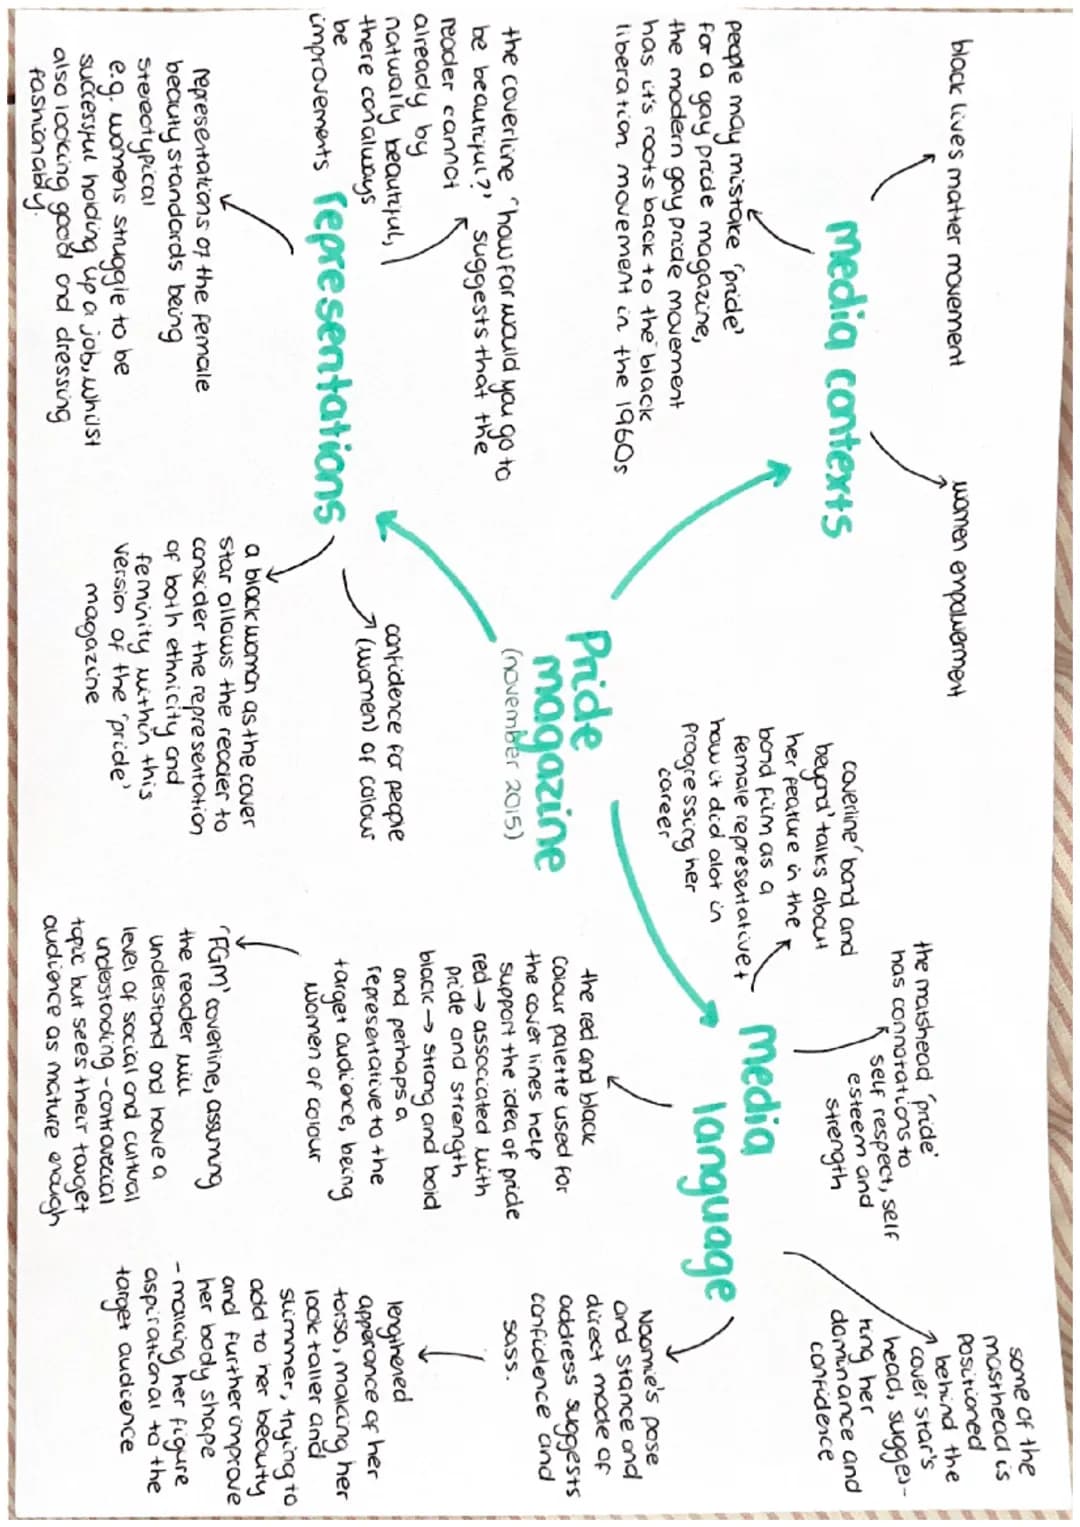 Pride
magazine
(november 2015)
media contexts
black lives matter movement
women empowerment
people may mistake 'pride'
for a gay pride magazine,
the modern gay pride movement
has it's roots back to the black
liberation movement in the 1960s
representations
the coverline "how far would you go to
be beautiful?" suggests that the
reader cannot
already by
naturally beautiful,
there can always
be
improvements
representations of the female
beauty standards being
stereotypical
e.g. womens struggle to be
successful holding up a job, whilst
also looking good and dressing
fashionably.
confidence for people
(women) of colour
a black woman as the cover
star allows the reader to
consider the representation
of both ethnicity and
feminity within this
version of the 'pride'
magazine
media
language
coverline 'bond and
beyond' talks about
her feature in the
bond film as a
female representative +
how it did alot in
progressing her
career
the matshead 'pride'
has connotations to
self respect, self
esteem and
strength
some of the
masthead is
positioned
behind the
cover star's
head, sugges-
ting her
dominance and
confidence
Naomie's pose
and stance and
direct mode of
address suggests
confidence and
sass.
lenghened
apperance of her
torso, making her
look taller and
slimmer, trying to
add to her beauty
and further improve
her body shape
- making her figure
aspirational to the
target audience
the red and black
colour palette used for
the cover lines help
support the idea of pride
red → associated with
pride and strength
black → strong and bold
and perhaps a
representative to the
target audience, being
women of colour
'FGM' coverline, assuming
the reader will
understand and have a
level of social and cultural
understanding - controvercial
topic but sees their target
audience as mature enough